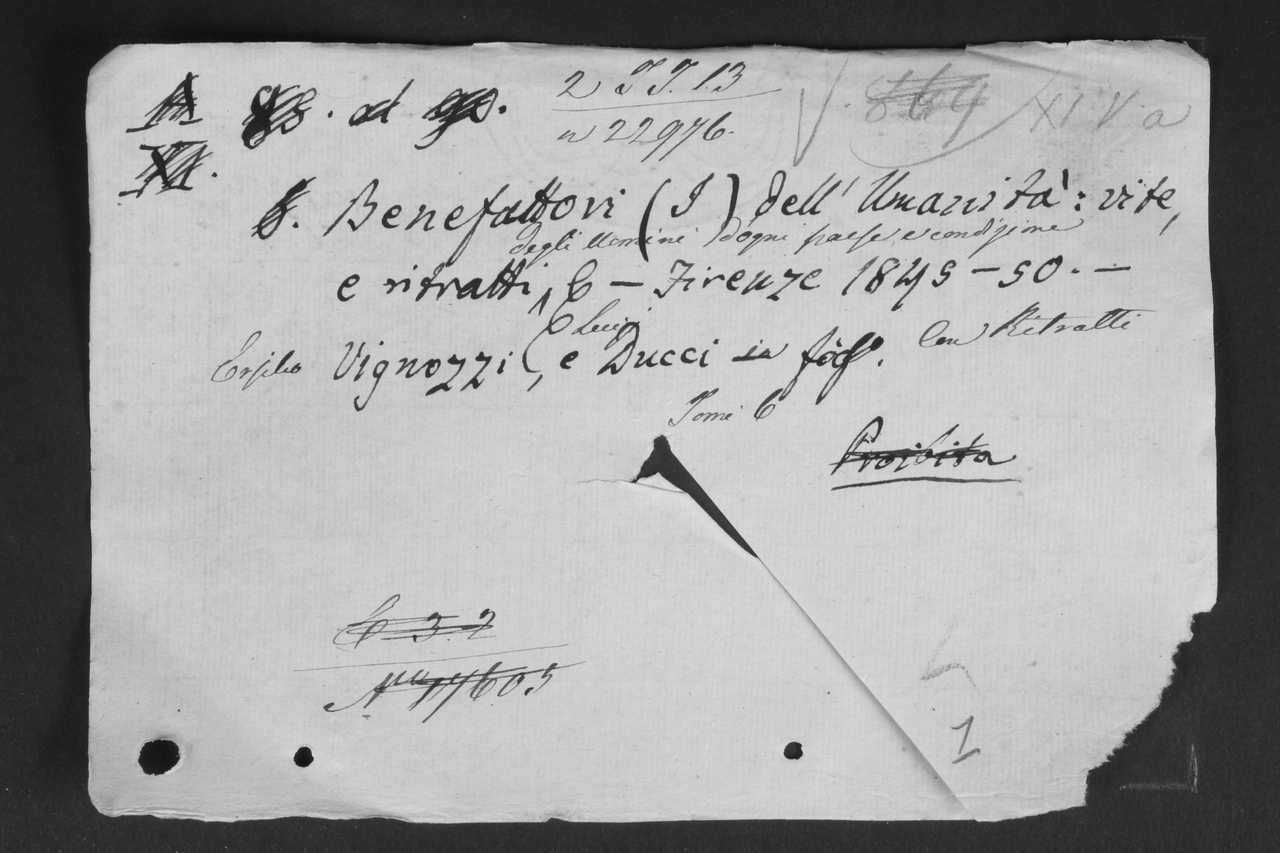 2 T T. 13
n 22976.
XI V a
Benefattori (I) dell' Umanità: vite,
degli Uomini d'ogni paese, e condizione
e ritratti, 6 — Firenze 1845-50. —
Luigi
Ersilio Vignozzi, e Ducci in fog. Con Ritratti
Tomi 6
Proibita
6 3 2
N.º 17605
1